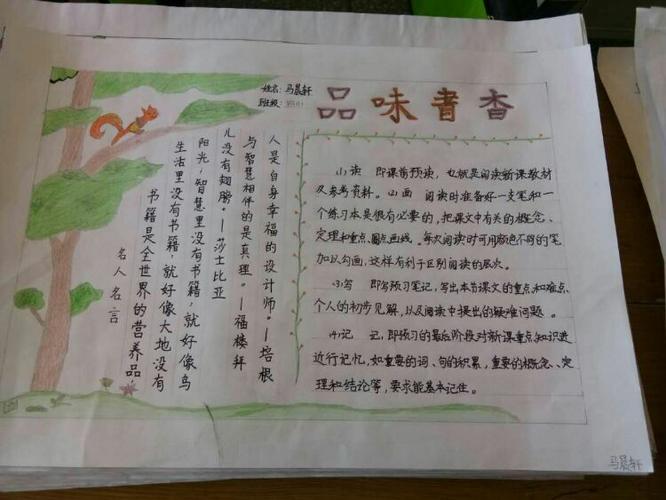 姓名: 马晨轩
班级:
品味書香
名人名言
书籍是全世界的营养品
生活里没有书籍,就好像大地没有
阳光,智慧里没有书籍,就好像鸟
儿没有翅膀。—莎士比亚
与智慧相伴的是真理。—福楼拜
人是自身幸福的设计师。—培根
(1)读 即课前预读,也就是阅读新课教材
及参考资料。(2)画 阅读时准备好一支笔和一
个练习本是很有必要的,把课文中有关的概念、
定理和重点、圈点画线。每次阅读时可用颜色不同的笔
加以勾画,这样有利于区别阅读的层次。
(3)写 即写预习笔记,写出本节课文的重点和难点、
个人的初步见解,以及阅读中提出的疑难问题。
(4)记 记,即预习的最后阶段对新课重点知识进
进行记忆,如重要的词、句的积累,重要的概念、定
理和结论等,要求能基本记住。
马晨轩